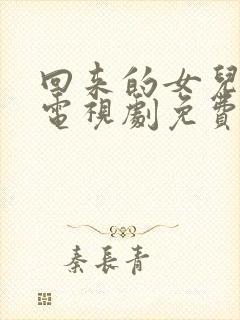 回來的女兒
電視劇免費
秦長青